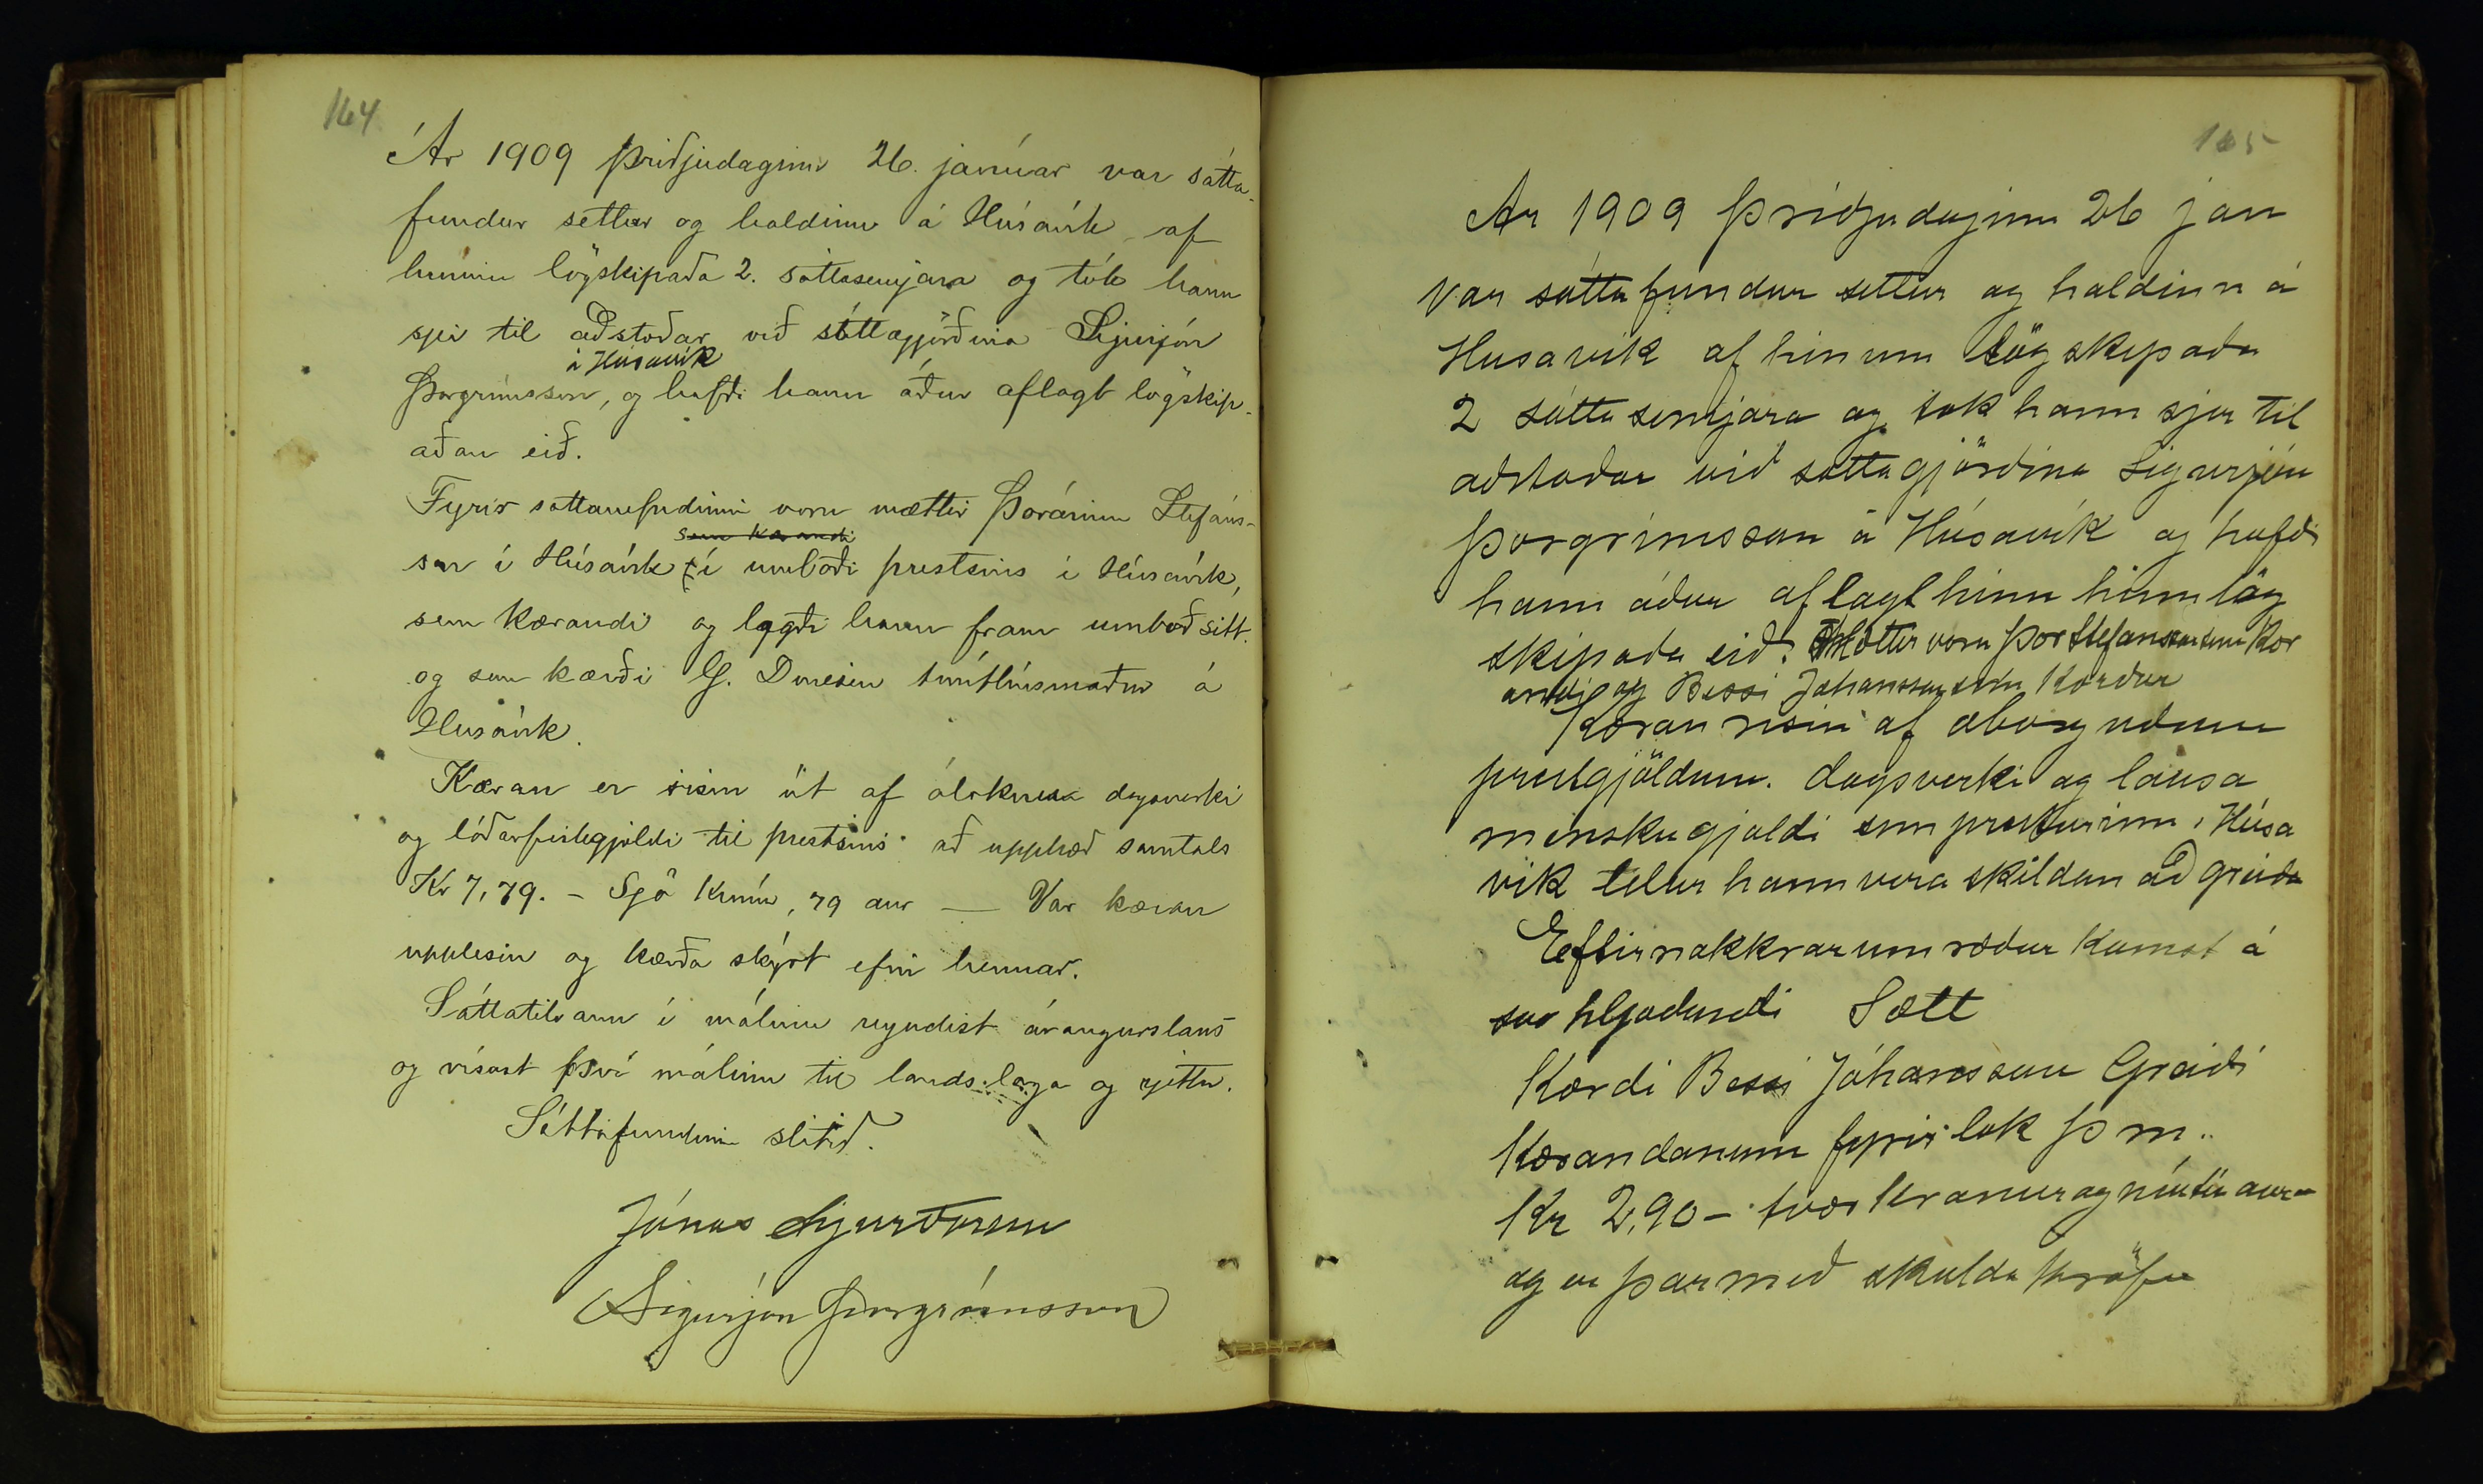 164
Ár 1909 þriðjudaginn 26. janúar var sátta-
fundur settur og haldinn á Húsavík af
hinum lögskipaða 2. sáttasemjara og tók hann
sjer til aðstoðar við sáttagjörðina Sigurjón
á Húsavík
Þorgrímsson, og hafði hann áður aflagt lögskip-
aðan eið.
Fyrir sáttanefndinni voru mættir Þórarinn Stefáns-
som kærandi
son í Húsavík í umboði prestsins í Húsavík,
sem kærandi og lagði hann fram umboð sitt.
og sem kærði G. Duresen tómthúsmaður á
Húsavík.
Kæran er risin út af óloknum dagsverki
og lóðarfiskgjöldi til prestsins að upphæð samtals
Kr 7,79. – Sjö krónur, 79 aur — Var kæran
upplesin og kærða skýrt efni hennar.
Sáttatilraun í málinu reyndist árangurslaus
og vísast því málinu til landslaga og rjettar.
Sáttafundinum slitið.
Jónas Sigurðsson
Sigurjón Þorgrímsson
165
Ar 1909 Þriðjudaginn 26 jan
var sáttafundur settur og haldinn á
Husavík af hinum lögskipaða
2 sáttasemjara og tok hann sjer til
aðstoðar við sattagjörðina Sigurjón
Þorgrímsson á Húsavík og hafði
hann áður aflagt hinn hinn lög
skipaða eið. Mættir voru Þor Stefansson sem Kær
andi og Bessi Johannsson sem Kærður
Kæran risin af oborguðum
prestgjöldum. dagsverki og lausa
mensku gjaldi sem presturinn i Húsa
vik telur hann vera skildan að greiða
Eeftir nokkrar umræður Komst á
svo hljodandi Sætt
Kærdi Bessi Jóhannsson Greiði
Kærandanum fyrir lok Þ m.
Kr 2,90 – tvær Kronur og níutíu aura
og er þar með skulda kröfu